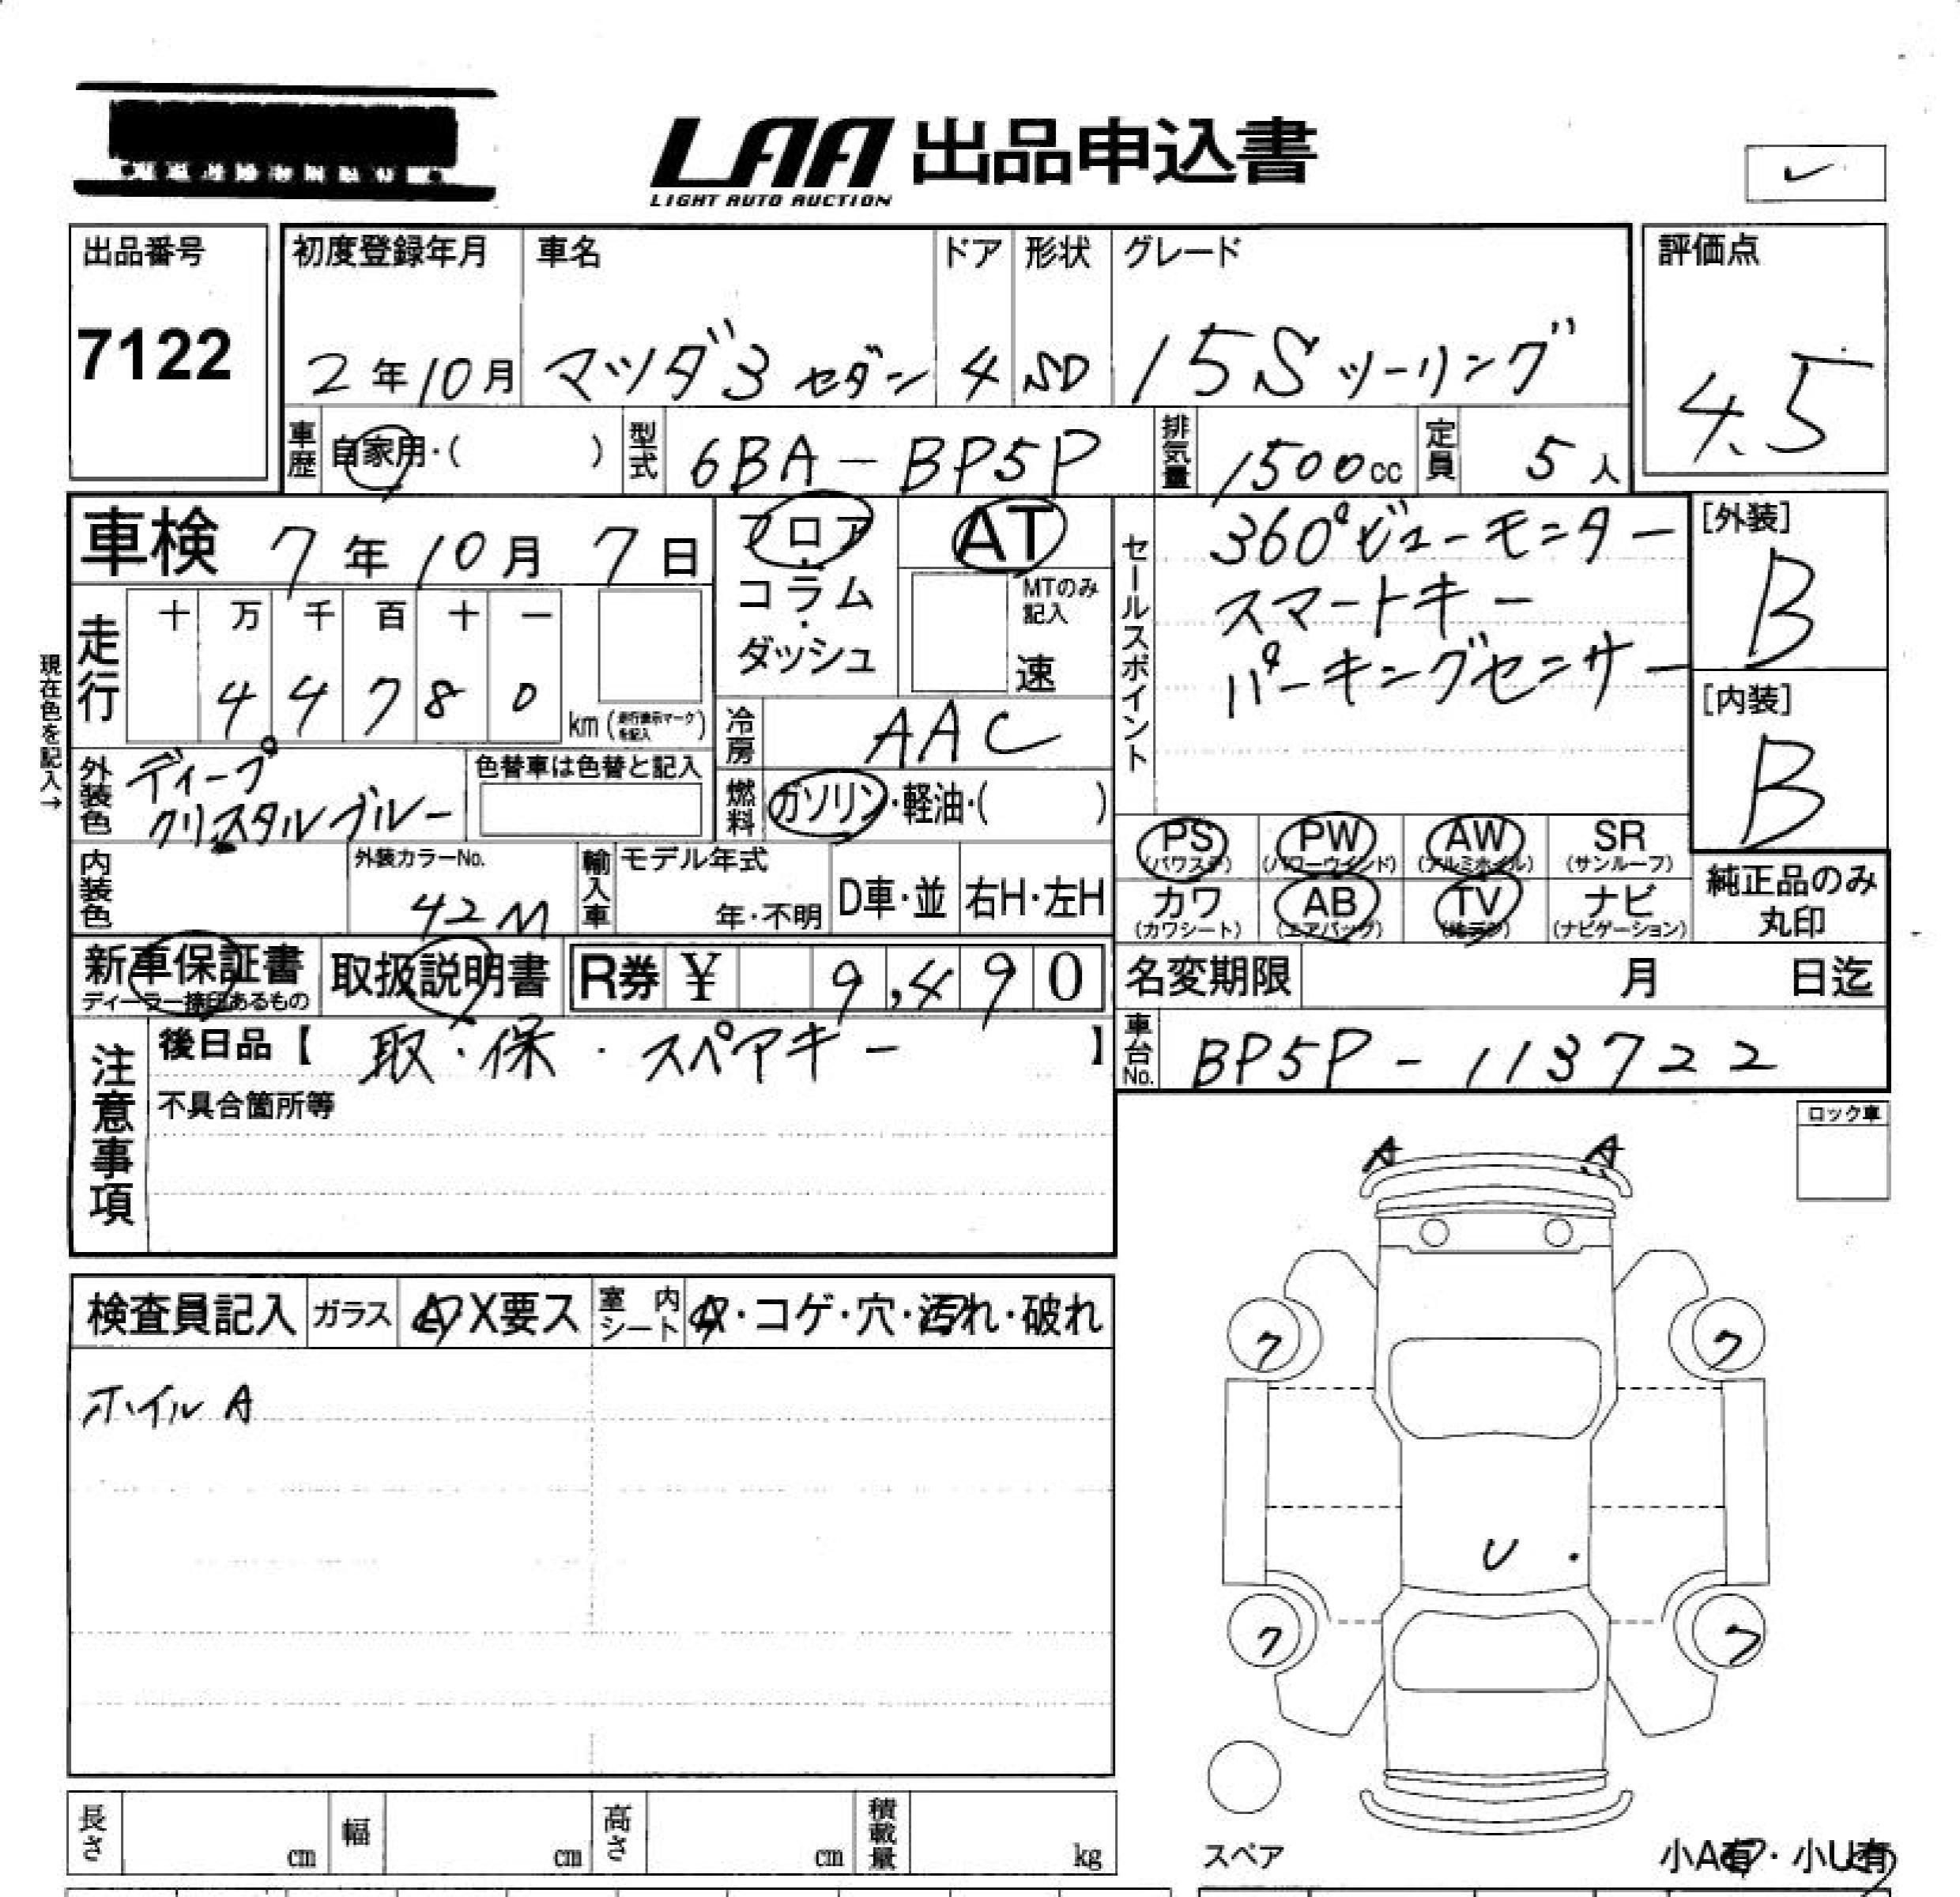 LAA 出品申込書
LIGHT AUTO AUCTION
出品番号
7122
初度登録年月
2年10月
車名
マツダ3 セダン
ドア
4
形状
SD
グレード
15Sツーリング
評価点
4.5
車歴
自家用・( )
型式
6BA-BP5P
排気量
1500cc
定員
5人
車検 7年10月7日
フロア・コラム・ダッシュ
AT
MTのみ記入
速
セールスポイント
360°ビューモニター
スマートキー
パーキングセンサー
[外装]
B
[内装]
B
現在色を記入→
走行
十 万 千 百 十 一
4 4 7 8 0
km (走行表示マークを記入)
冷房
AAC
外装色
ディープ
クリスタルブルー
色替車は色替と記入
燃料
ガソリン・軽油・( )
PS
(パワステ)
PW
(パワーウインド)
AW
(アルミホイル)
SR
(サンルーフ)
カワ
(カワシート)
AB
(エアバッグ)
TV
(地デジ)
ナビ
(ナビゲーション)
純正品のみ
丸印
内装色
外装カラーNo.
42M
輸入車
モデル年式
年・不明
D車・並
右H・左H
新車保証書
ディーラー捺印あるもの
取扱説明書
R券 ¥ 9,490
名変期限 月 日迄
車台No.
BP5P-113722
注意事項
後日品【 取・保・スペアキー 】
不具合箇所等
ロック車
A A
検査員記入
ガラス
A X要ス
室内シート
A・コゲ・穴・汚れ・破れ
ホイルA
ク ク
U
ク ク
スペア
小A有・小U有
長さ cm
幅 cm
高さ cm
積載量 kg